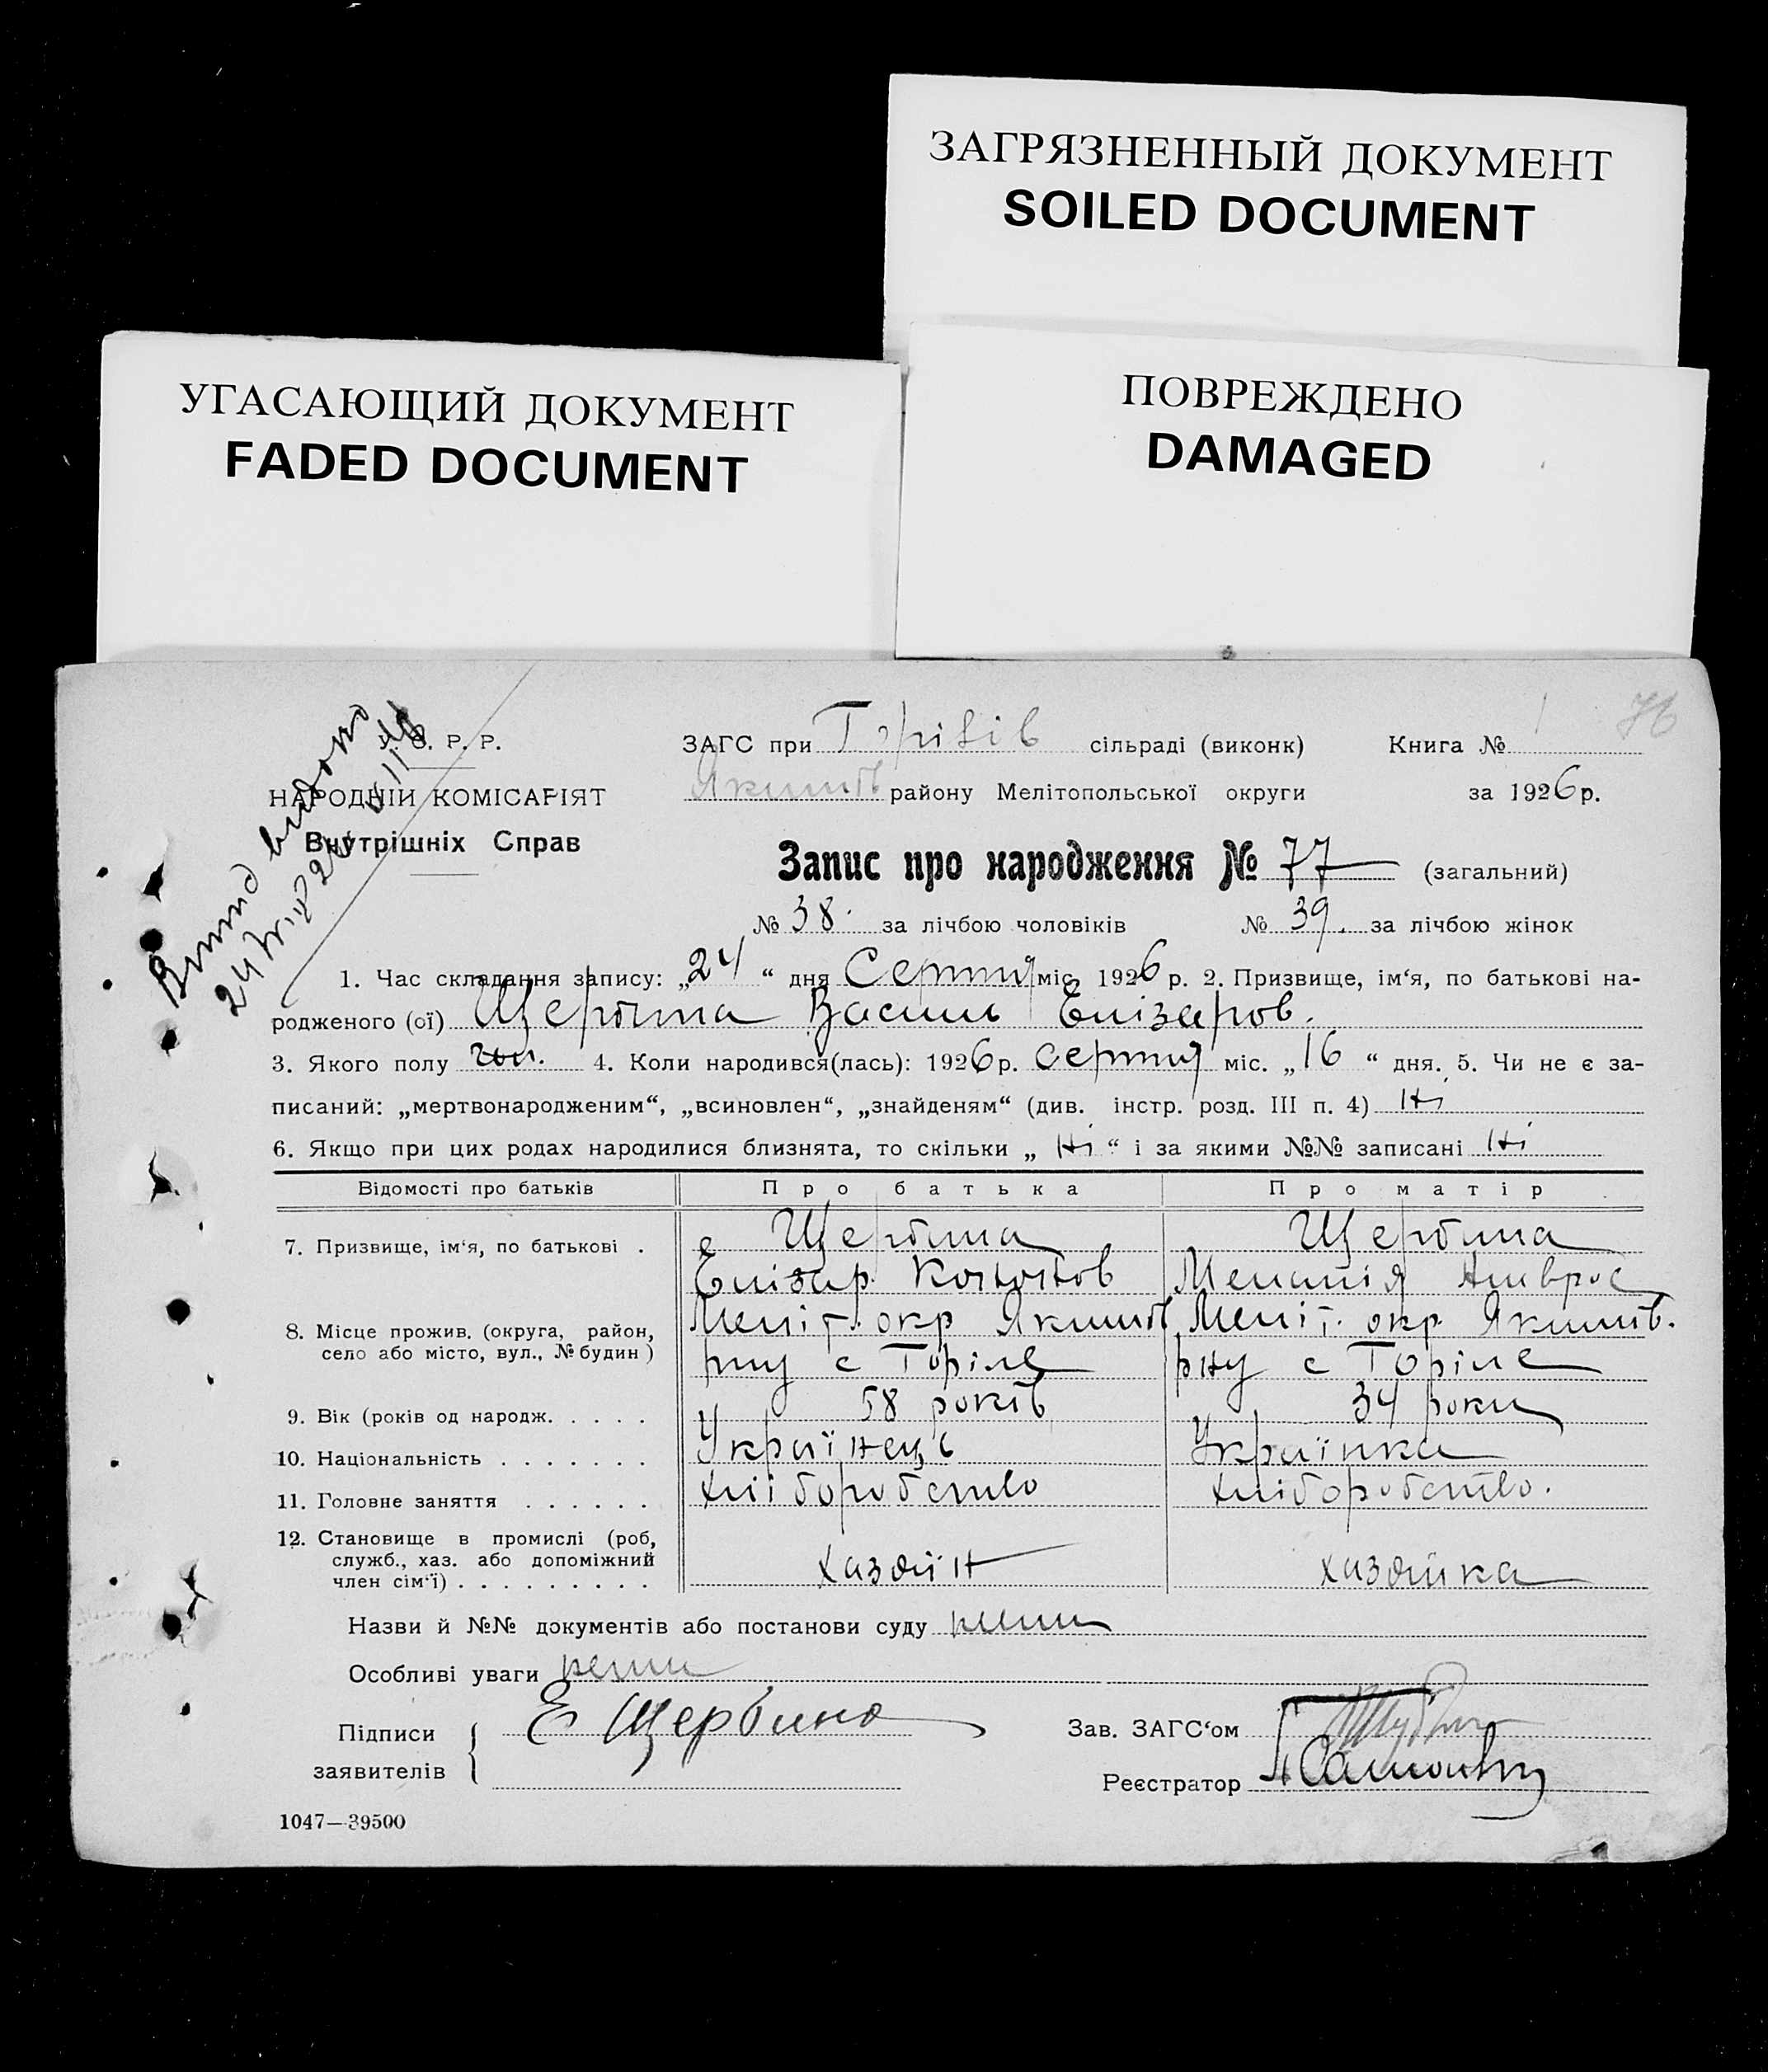 ЗАГРЯЗНЕННЫЙ ДОКУМЕНТ
SOILED DOCUMENT
УГАСАЮЩИЙ ДОКУМЕНТ
FADED DOCUMENT
ПОВРЕЖДЕНО
DAMAGED
76
У. С. Р. Р.
НАРОДНІЙ КОМІСАРІЯТ
Внутрішніх Справ
ЗАГС при сільраді (виконк) Книга №
Якимів району Мелітопольської округи за 1926 р.
Запис про народження № 77 (загальний)
№ 38. за лічбою чоловіків № 39. за лічбою жінок
1. Час складання запису: „24“ дня Серпня міс. 1926 р. 2. Призвище, ім‘я, по батькові на-
родженого (ої) Щербина Василь Елізаров.
3. Якого полу чол. 4. Коли народився(лась): 1926 р. серпня міс. „16“ дня. 5. Чи не є за-
писаний: „мертвонародженим“, „всиновлен“, „знайденям“ (див. інстр. розд. III п. 4) Ні
6. Якщо при цих родах народилися близнята, то скільки „Ні“ і за якими №№ записані Ні
Відомості про батьків Про батька Про матір
7. Призвище, ім‘я, по батькові . Щербина Щербина
Елізар Кононов Меланія Амврос
8. Місце прожив. (округа, район, Меліт. окр Якимів Меліт. окр. Якимів.
село або місто, вул., № будин) рну с Торіле рну с Торіле
9. Вік (років од народж. . . . . 58 років 34 роки
10. Національність . . . . . . . Українець Українка
11. Головне заняття . . . . . . хліборобство хліборобство.
12. Становище в промислі (роб,
служб., хаз. або допоміжний хазяїн хазяйка
член сім‘ї) . . . . . . . . .
Назви й №№ документів або постанови суду
Особливі уваги
Підписи Е Щербина Зав. ЗАГС‘ом
заявителів Реєстратор
1047—39500